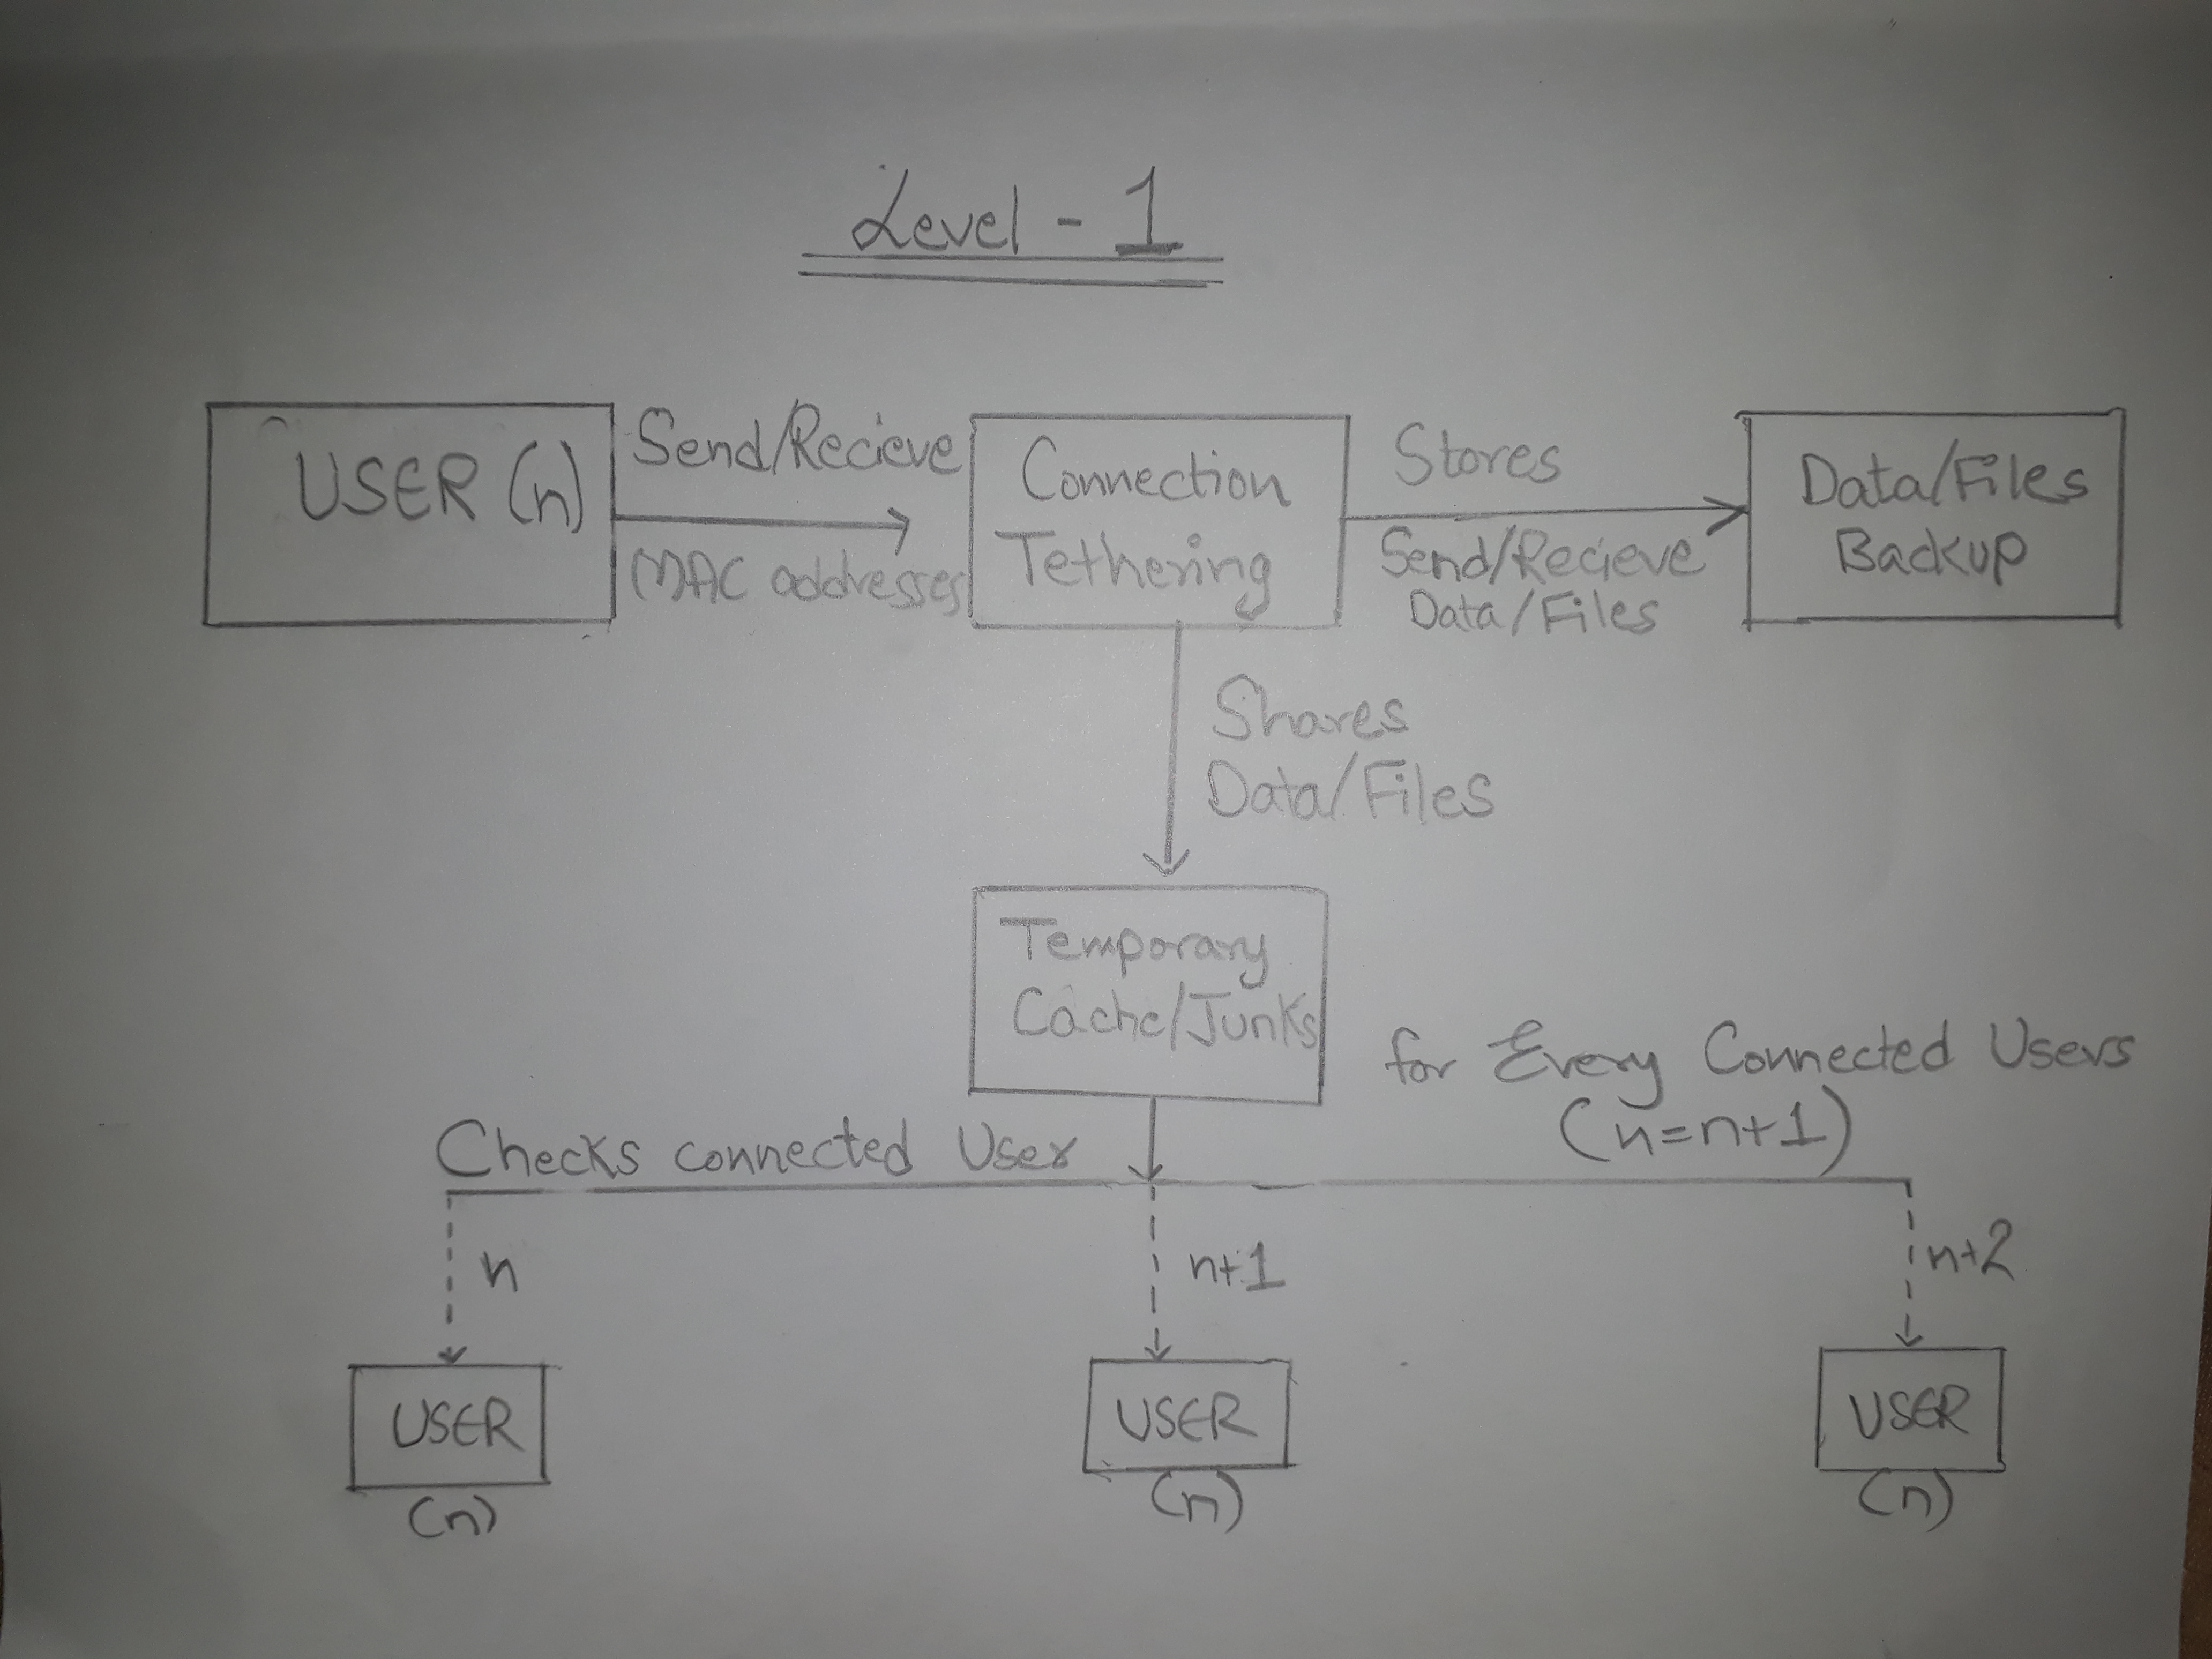 Level - 1
USER (n)
Send/Recieve
MAC addresses
Connection
Tethering
Stores
Send/Recieve
Data/Files
Data/Files
Backup
Shares
Data/Files
Temporary
Cache/Junks
for Every Connected Users
(n=n+1)
Checks connected User
n
n+1
n+2
USER
(n)
USER
(n)
USER
(n)